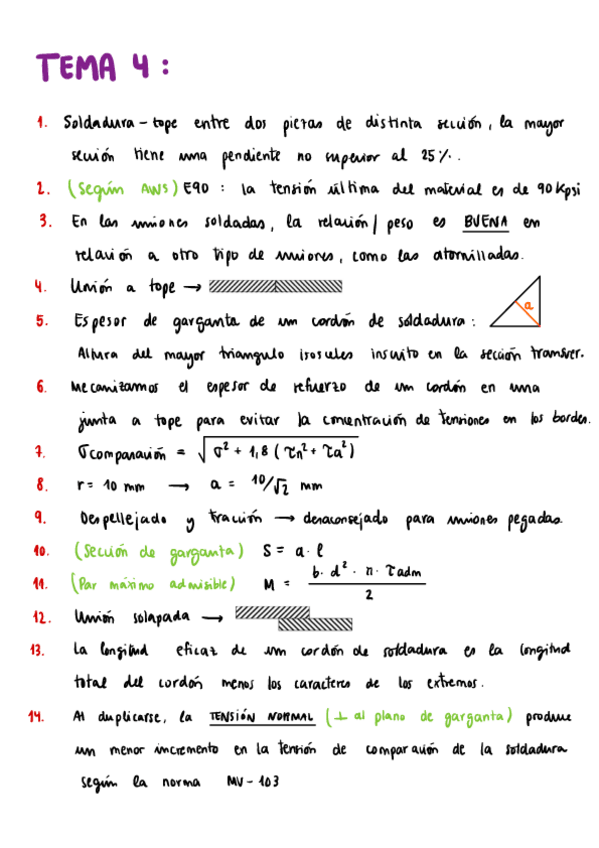 TEMA 4 :
1. Soldadura - tope entre dos piezas de distinta sección, la mayor
sección tiene una pendiente no superior al 25%.
2. (Según AWS) E90 : la tensión última del material es de 90 Kpsi
3. En las uniones soldadas, la relación/ peso es BUENA en
relación a otro tipo de uniones, como las atornilladas.
4. Unión a tope →
5. Espesor de garganta de un cordón de soldadura : a
Altura del mayor triangulo isosceles inscrito en la sección transver.
6. Mecanizamos el espesor de refuerzo de un cordón en una
junta a tope para evitar la concentración de tensiones en los bordes.
7. σcomparación = √σ² + 1,8 (τn² + τa²)
8. r = 10 mm → a = 10/√2 mm
9. Despellejado y tracción → desaconsejado para uniones pegadas.
10. (Sección de garganta) S = a · l
11. (Par máximo admisible) M = b · d² · π · τadm / 2
12. Unión solapada →
13. La longitud eficaz de un cordón de soldadura es la longitud
total del cordón menos los caracteres de los extremos.
14. Al duplicarse, la TENSIÓN NORMAL (⊥ al plano de garganta) produce
un menor incremento en la tensión de comparación de la soldadura
según la norma MV - 103